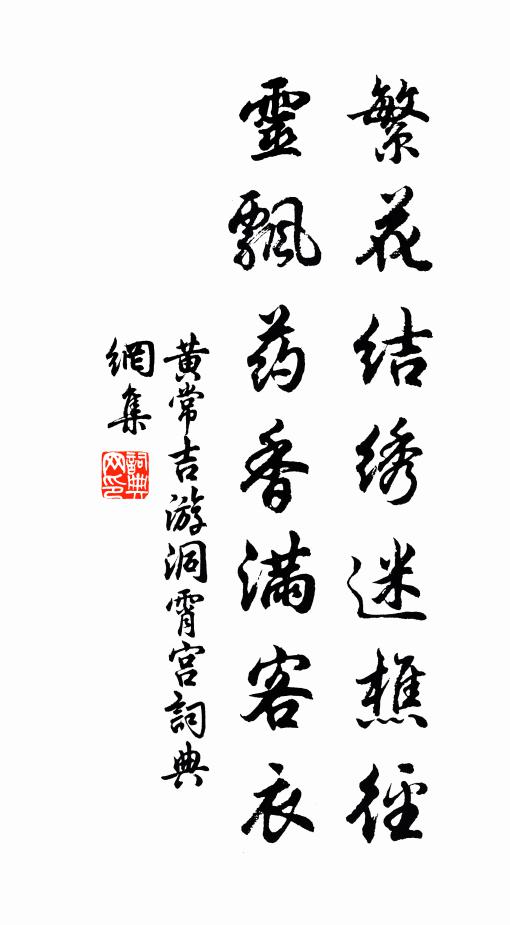 繁花结绣迷樵径
靈飄药香满客衣
黄常吉游洞霄宫詞典
網集
詞典網印